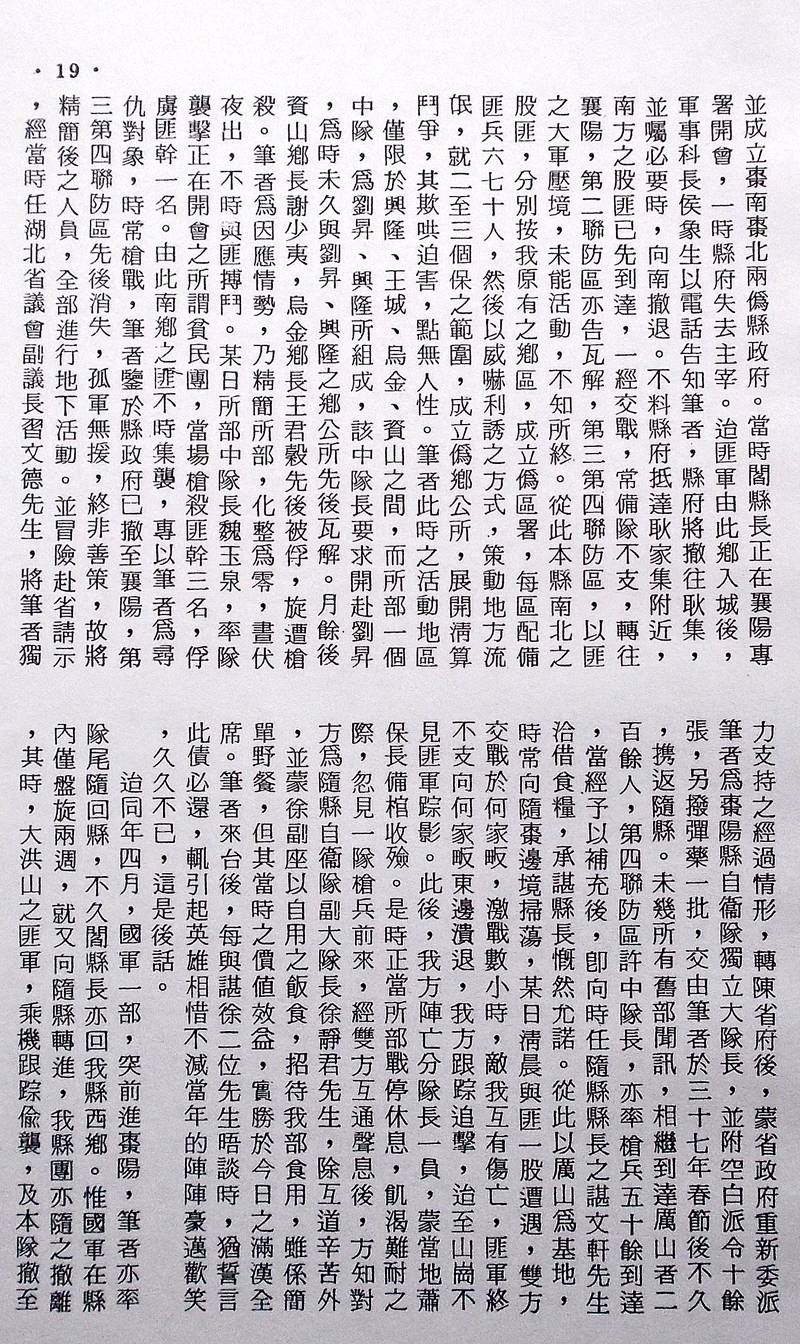 ·19·
並成立棗南棗北兩僞縣政府。當時閻縣長正在襄陽專
署開會，一時縣府失去主宰。迨匪軍由此鄉入城後，
軍事科長侯象生以電話告知筆者，縣府將撤往耿集，
並囑必要時，向南撤退。不料縣府抵達耿家集附近，
南方之股匪已先到達，一經交戰，常備隊不支，轉往
襄陽，第二聯防區亦告瓦解，第三第四聯防區，以匪
之大軍壓境，未能活動，不知所終。從此本縣南北之
股匪，分別按我原有之鄉區，成立僞區署，每區配備
匪兵六七十人，然後以威嚇利誘之方式，策動地方流
氓，就二至三個保之範圍，成立僞鄉公所，展開淸算
鬥爭，其欺哄迫害，點無人性。筆者此時之活動地區
，僅限於興隆、王城、烏金、資山之間，而所部一個
中隊，爲劉昇、興隆所組成，該中隊長要求開赴劉昇
，爲時未久與劉昇、興隆之鄉公所先後瓦解。月餘後
資山鄉長謝少夷，烏金鄉長王君毅先後被俘，旋遭槍
殺。筆者爲因應情勢，乃精簡所部，化整爲零，晝伏
夜出，不時與匪搏鬥。某日所部中隊長魏玉泉，率隊
襲擊正在開會之所謂貧民團，當場槍殺匪幹三名，俘
虜匪幹一名。由此南鄉之匪不時集襲，專以筆者爲尋
仇對象，時常槍戰，筆者鑒於縣政府已撤至襄陽，第
三第四聯防區先後消失，孤軍無援，終非善策，故將
精簡後之人員，全部進行地下活動。並冒險赴省請示
，經當時任湖北省議會副議長習文德先生，將筆者獨
力支持之經過情形，轉陳省府後，蒙省政府重新委派
筆者爲棗陽縣自衞隊獨立大隊長，並附空白派令十餘
張，另撥彈藥一批，交由筆者於三十七年春節後不久
，携返隨縣。未幾所有舊部聞訊，相繼到達厲山者二
百餘人，第四聯防區許中隊長，亦率槍兵五十餘到達
，當經予以補充後，卽向時任隨縣縣長之諶文軒先生
洽借食糧，承諶縣長慨然允諾。從此以厲山爲基地，
時常向隨棗邊境掃蕩，某日淸晨與匪一股遭遇，雙方
交戰於何家畈，激戰數小時，敵我互有傷亡，匪軍終
不支向何家畈東邊潰退，我方跟踪追擊，迨至山崗不
見匪軍踪影。此後，我方陣亡分隊長一員，蒙當地蕭
保長備棺收殮。是時正當所部戰停休息，飢渴難耐之
際，忽見一隊槍兵前來，經雙方互通聲息後，方知對
方爲隨縣自衞隊副大隊長徐靜君先生，除互道辛苦外
，並蒙徐副座以自用之飯食，招待我部食用，雖係簡
單野餐，但其當時之價値效益，實勝於今日之滿漢全
席。筆者來台後，每與諶徐二位先生晤談時，猶誓言
此債必還，輒引起英雄相惜不減當年的陣陣豪邁歡笑
，久久不已，這是後話。
迨同年四月，國軍一部，突前進棗陽，筆者亦率
隊尾隨回縣，不久閻縣長亦回我縣西鄉。惟國軍在縣
內僅盤旋兩週，就又向隨縣轉進，我縣團亦隨之撤離
，其時，大洪山之匪軍，乘機跟踪偸襲，及本隊撤至